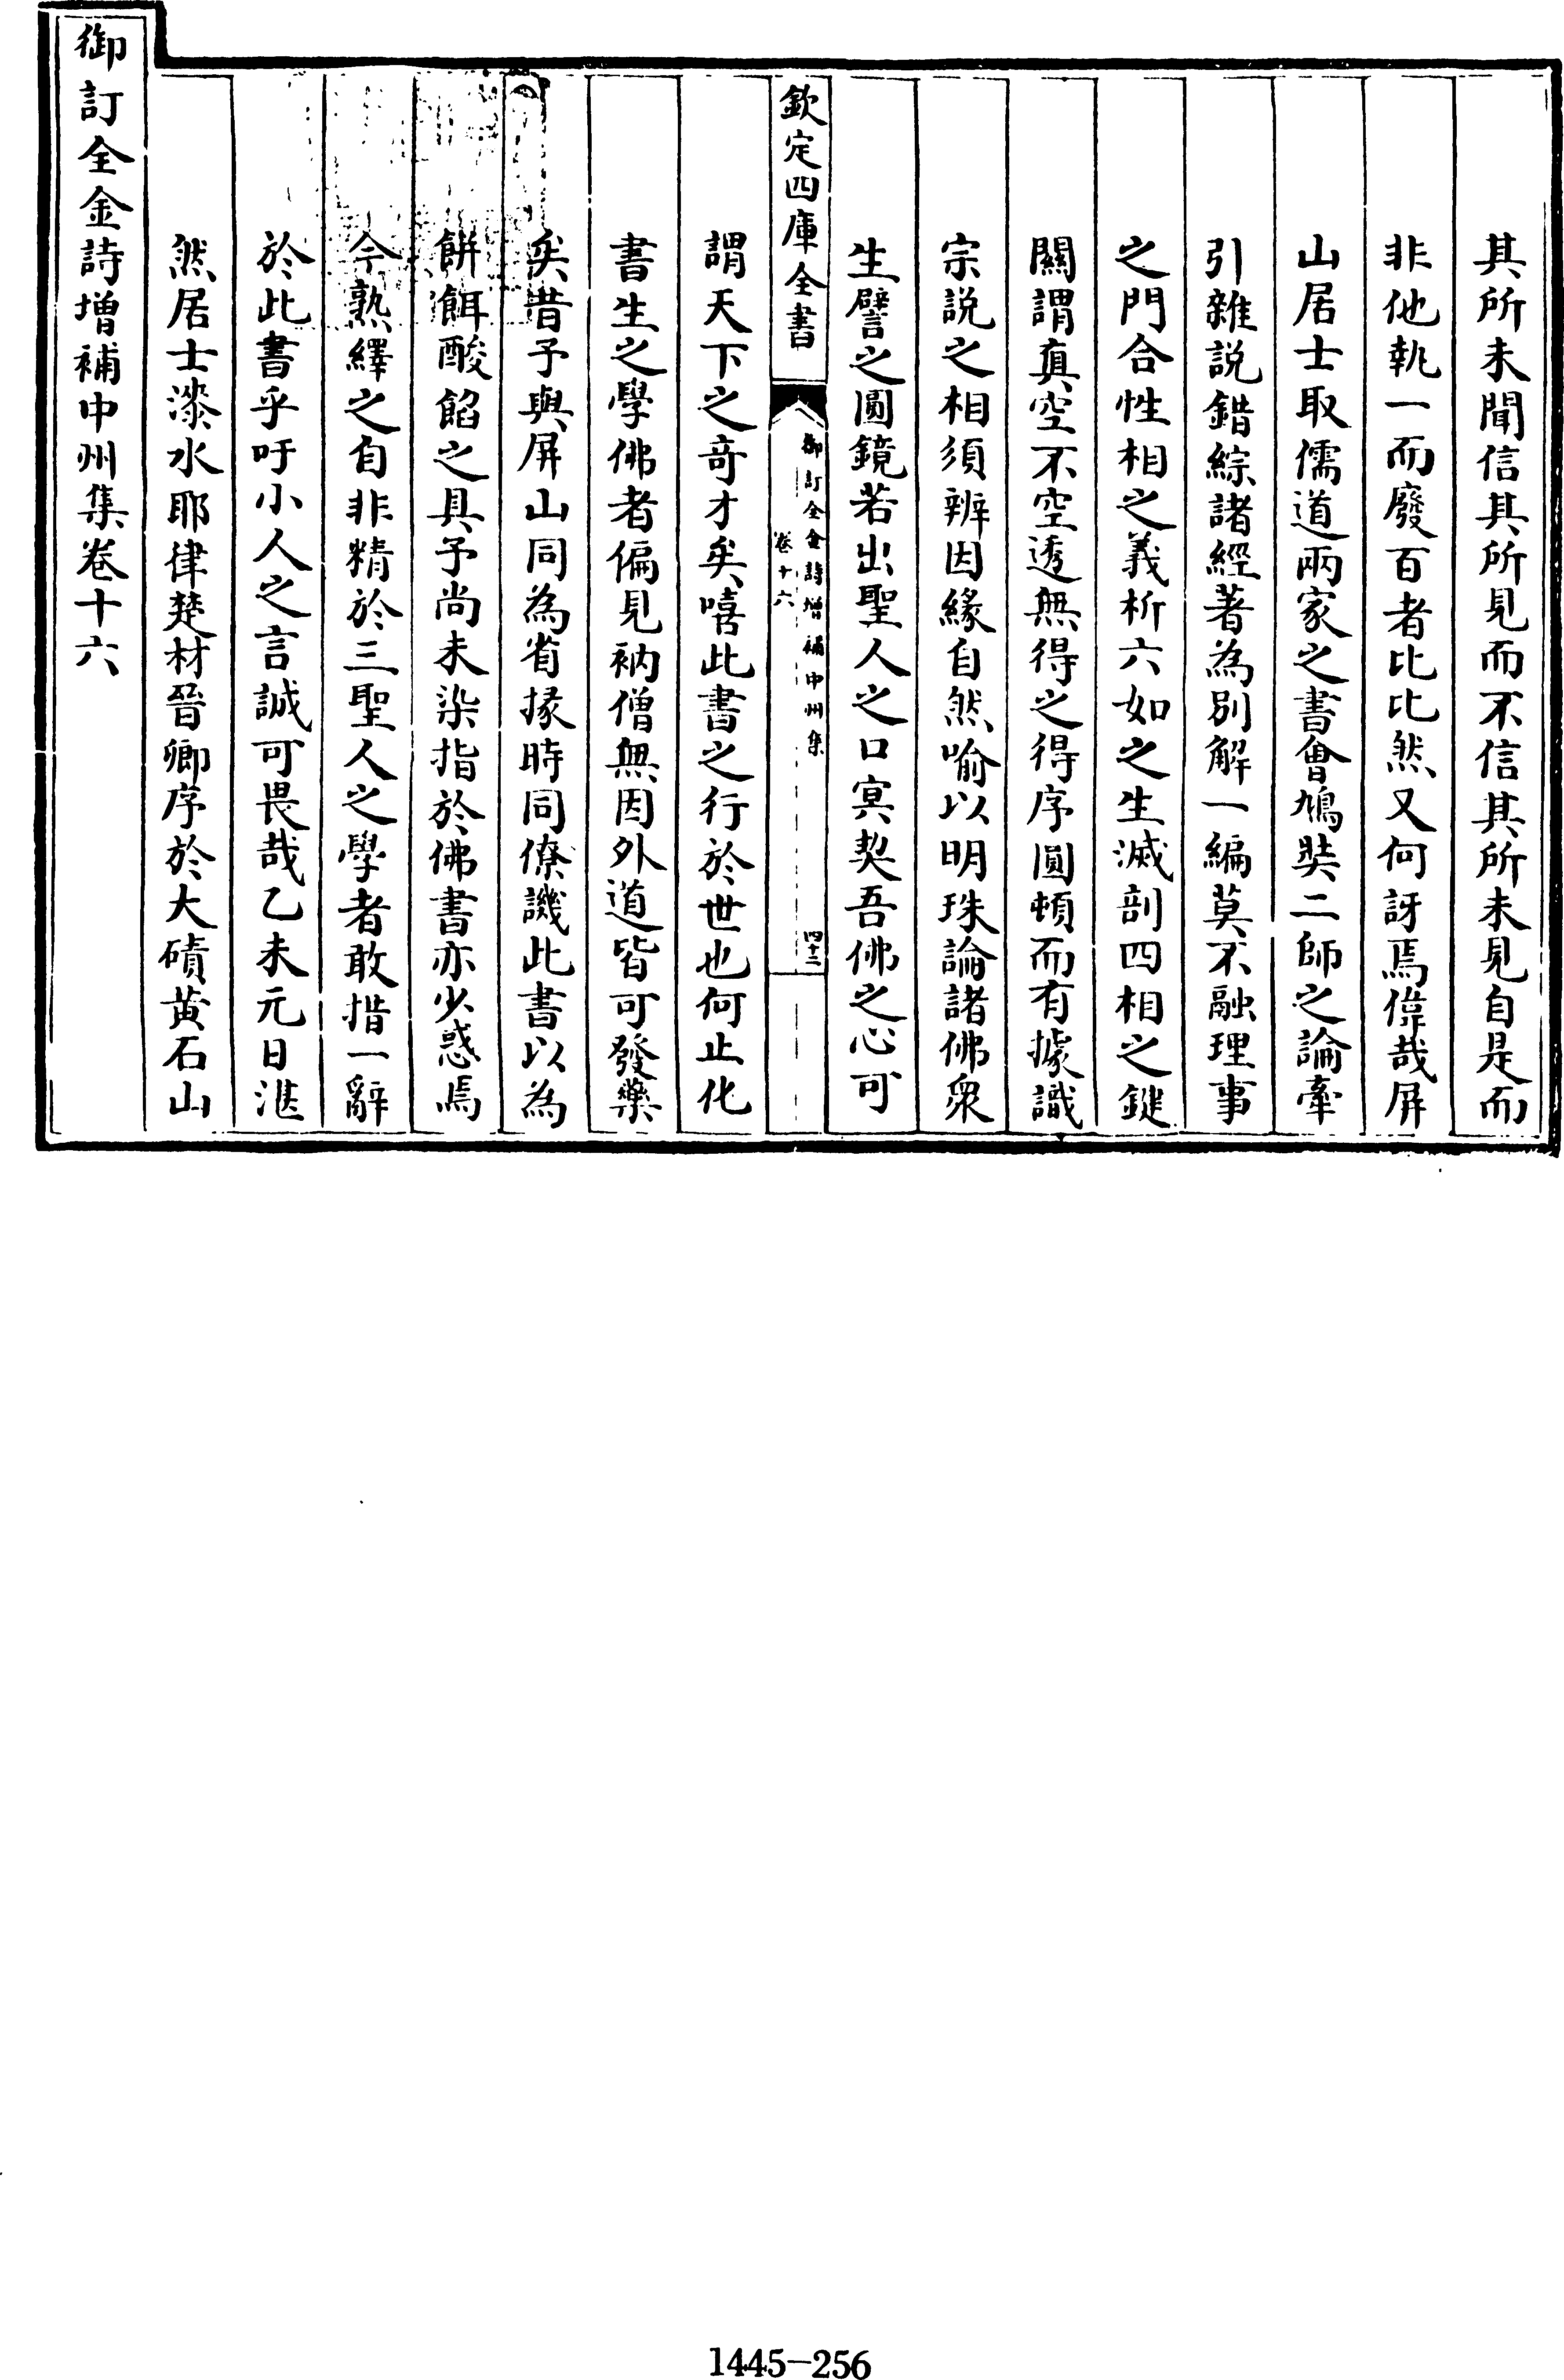 其所未聞信其所見而不信其所未見自是而
非他執一而廢百者比比然又何訝焉偉哉屏
山居士取儒道兩家之書會鳩奘二師之論牽
引雜説錯綜諸經著為別解一編莫不融理事
之門合性相之義析六如之生滅剖四相之鍵
關謂真空不空透無得之得序圓頓而有據識
宗説之相須辨因緣自然喻以明珠論諸佛衆
生譬之圓鏡若出聖人之口冥契吾佛之心可
欽定四庫全書
御訂全金詩增補中州集
卷十六
四十二
謂天下之奇才矣嘻此書之行於世也何止化
書生之學佛者偏見衲僧無因外道皆可發藥
矣昔予與屏山同為省掾時同僚譏此書以為
餅餌酸餡之具予尚未染指於佛書亦少惑焉
今熟繹之自非精於三聖人之學者敢措一辭
於此書乎吁小人之言誠可畏哉乙未元日湛
然居士漆水耶律楚材晉卿序於大磧黃石山
御訂全金詩增補中州集卷十六
1445-256